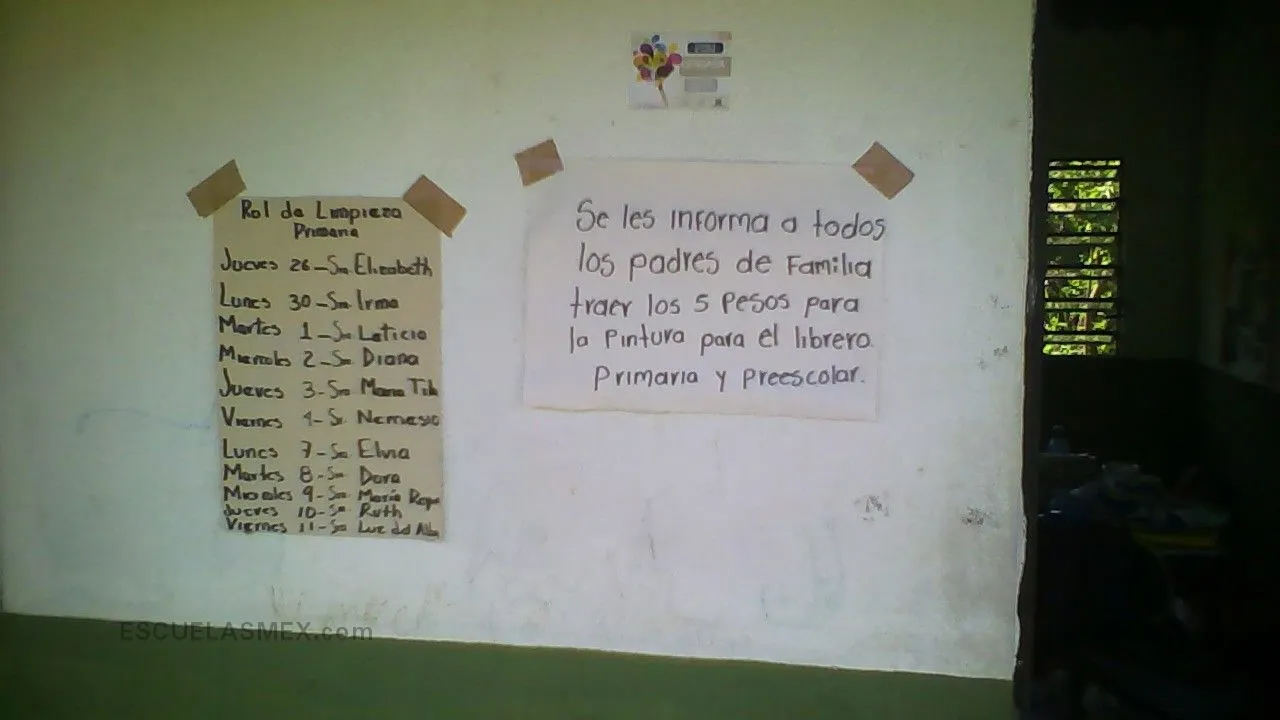 Rol de Limpieza
Primaria
Jueves 26-Sra Elizabeth
Lunes 30-Sra Irma
Martes 1-Sra Leticia
Miercoles 2-Sra Diana
Jueves 3-Sra Maria
Viernes 4-Sr. Nemesio
Lunes 7-Sra Elvia
Martes 8-Sra Dora
9-Sra Maria
Jueves 10-Sra Ruth
Viernes 11-Sra Luz del
Se les informa a todos
los padres de Familia
traer los 5 Pesos para
la Pintura para el librero.
Primaria y Preescolar.
ESCUELASMEX.com